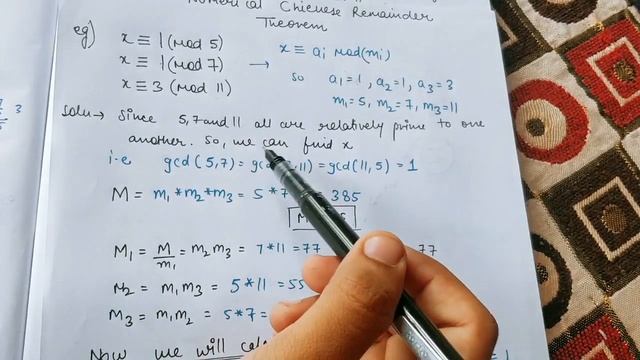 Numerical Chienese Remainder
Theorem
eg)
x ≡ 1 (mod 5)
x ≡ 1 (mod 7) → x ≡ ai mod(mi)
x ≡ 3 (mod 11)
so a1 = 1, a2 = 1, a3 = 3
m1 = 5, m2 = 7, m3 = 11
Soln → Since 5, 7 and 11 all are relatively prime to one
another. So, we can find x
i.e gcd(5,7) = gc , 11) = gcd(11,5) = 1
M = m1 * m2 * m3 = 5 * 7 = 385
M1 = M/m1 = m2 m3 = 7 * 11 = 77 77
M2 = m1 m3 = 5 * 11 = 55
M3 = m1 m2 = 5 * 7 =
Now we will